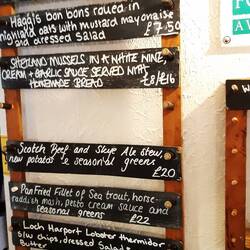 Haggis bon bons rolled in
highland oats with mustard mayonaise
and dressed Salad £7.50
SHETLAND MUSSELS IN A WHITE WINE,
CREAM + GARLIC SAUCE SERVED WITH
HOMEMADE BREAD £8/£16
Scotch Beef and Skye Ale stew,
new potatoes & seasonal greens
£20
Pan Fried Fillet of Sea trout, horse-
raddish mash, pesto cream sauce and
seasonal greens £22
Loch Harport Lobster thermidor
s/w chips, dressed Salad &
Butter